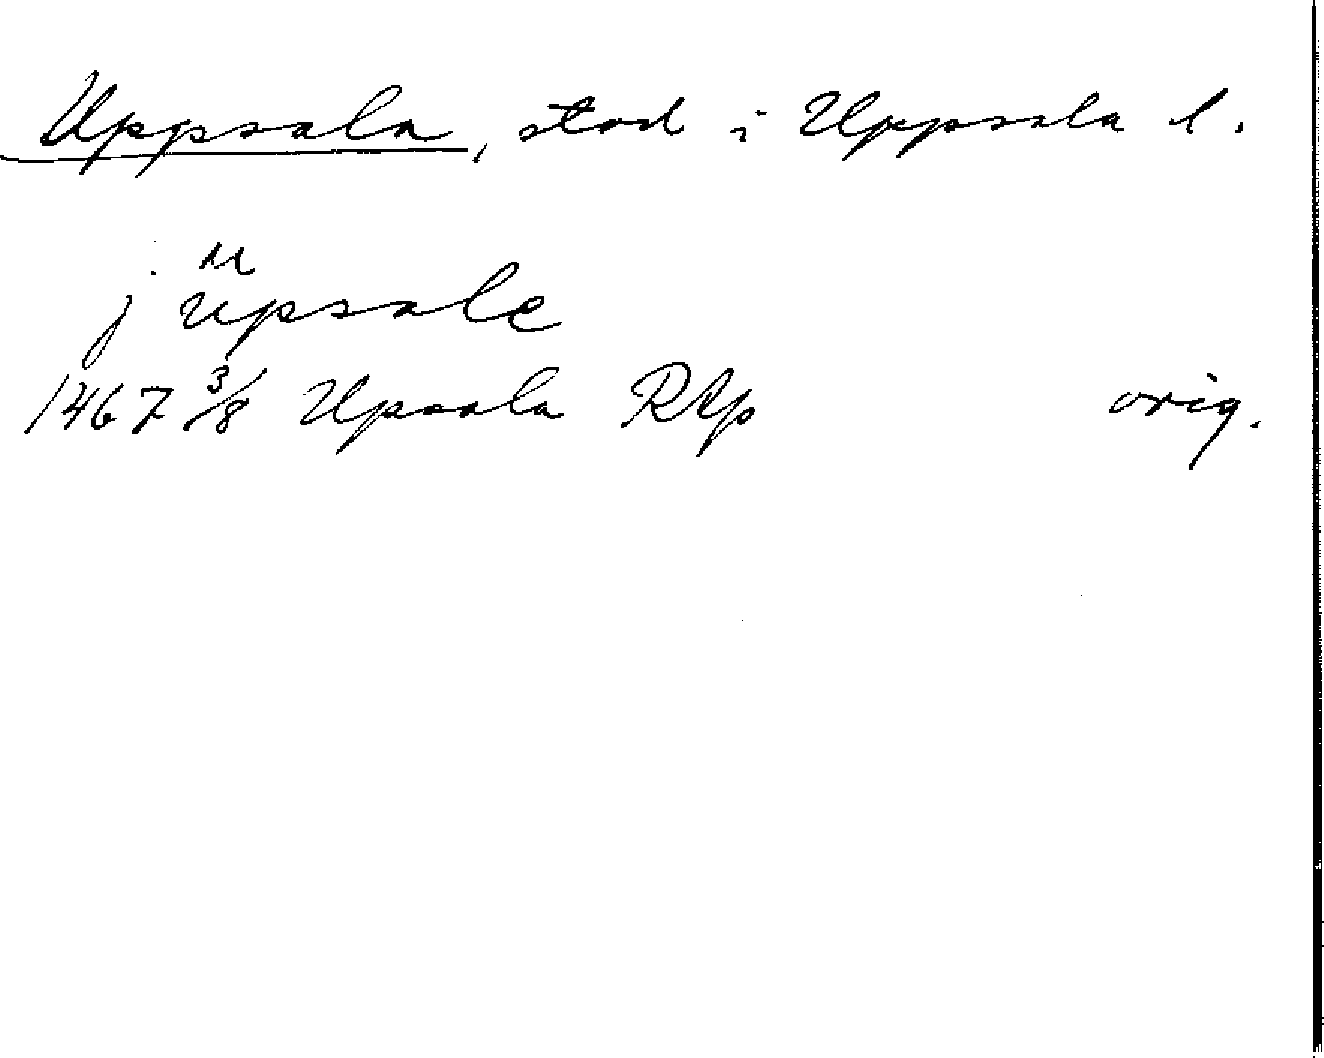 Uppsala, stad i Uppsala l.
u
j upsale
1467 3/8 Upsala RAp orig.